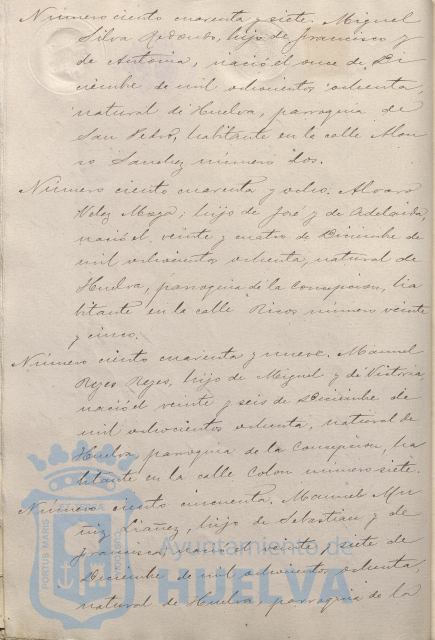 Número ciento cuarenta y siete. Miguel
Silva Redondo, hijo de Francisco y
de Antonia, nació el once de Di
ciembre de mil ochocientos ochenta,
natural de Huelva, parroquia de
San Pedro, habitante en la calle Alon
so Sanchez número dos.
Número ciento cuarenta y ocho. Alvaro
Velez Maya; hijo de José y de Adelaida,
nació el veinte y cuatro de Diciembre de
mil ochocientos ochenta, natural de
Huelva, parroquia de la Concepcion, ha
bitante en la calle Ricos número veinte
y cinco.
Número ciento cuarenta y nueve. Manuel
Reyes Reyes, hijo de Miguel y de Victoria,
nació el veinte y seis de Diciembre de
mil ochocientos ochenta, natural de
Huelva, parroquia de la Concepcion, ha
bitante en la calle Colon número siete.
Número ciento cincuenta. Manuel Mu
ñiz Liañez, hijo de Sebastian y de
Francisca, nació el veinte y siete de
Diciembre de mil ochocientos ochenta,
natural de Huelva, parroquia de la
Ayuntamiento de
HUELVA
PORTUS MARIS